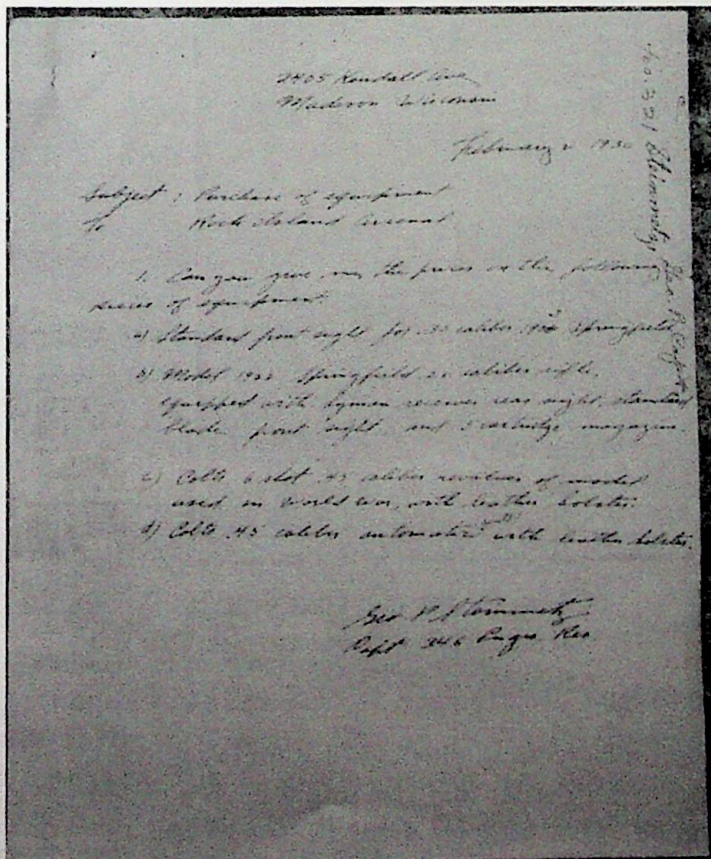 2405 Kendall Ave
Madison Wisconsin
February 2 193
Subject : Purchase of equipment
To Rock Island Arsenal
1. Can you give me the prices on the following
pieces of equipment.
a) Standard front sight for .30 caliber Springfield
b) Model 1922 Springfield 22 caliber rifle,
equipped with Lyman receiver rear sight, standard
blade front sight, and 5 cartridge magazine.
c) Colts 6 shot .45 caliber revolver of model
used in World War, with leather holster.
d) Colts .45 caliber automatic with leather holster.
Geo P Steinmetz
Capt 346 Engrs Res
400.321 Steinmetz, Geo. P. Capt